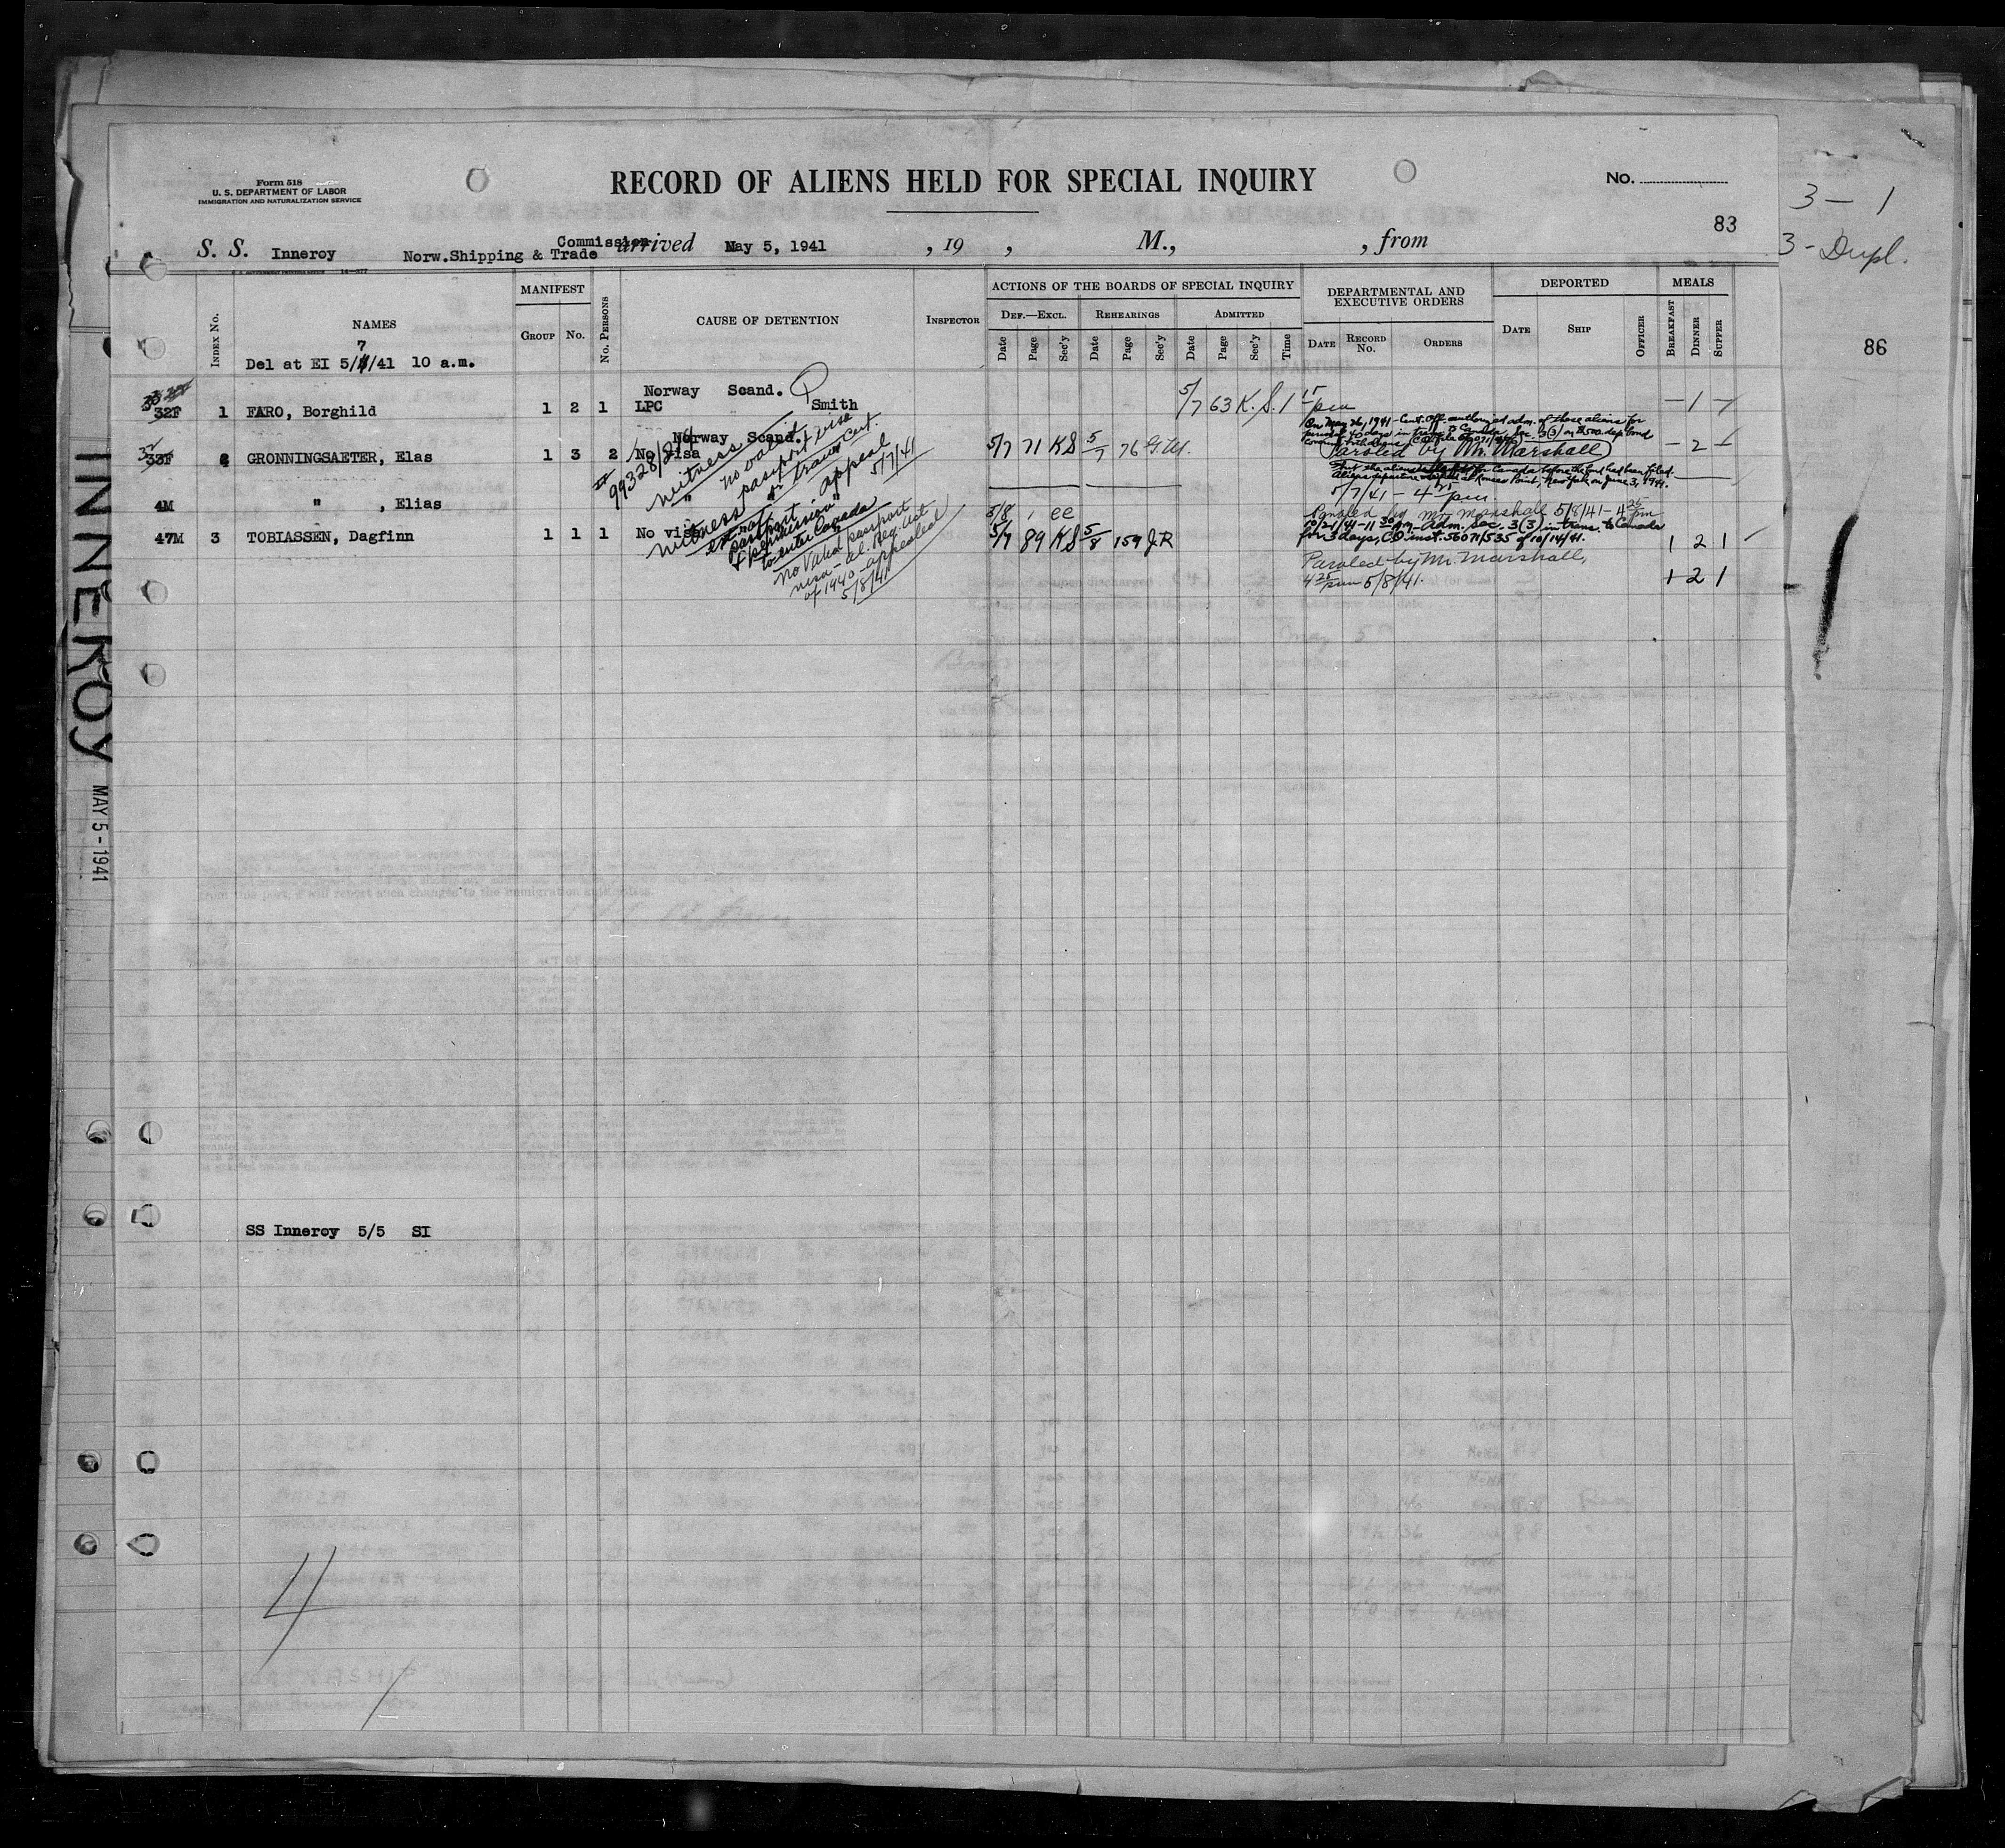 Form 518
U. S. DEPARTMENT OF LABOR
IMMIGRATION AND NATURALIZATION SERVICE
RECORD OF ALIENS HELD FOR SPECIAL INQUIRY
No.
3 - 1
83
3 - Dupl.
S. S. Inneroy Norw.Shipping & Trade Commission arrived May 5, 1941 , 19 , M., , from
INDEX No.
NAMES
MANIFEST
GROUP No.
No. PERSONS
CAUSE OF DETENTION
INSPECTOR
ACTIONS OF THE BOARDS OF SPECIAL INQUIRY
DEF.—EXCL. REHEARINGS ADMITTED
Date Page Sec'y Date Page Sec'y Date Page Sec'y Time
DEPARTMENTAL AND
EXECUTIVE ORDERS
DATE RECORD No. ORDERS
DEPORTED
DATE SHIP OFFICER
MEALS
BREAKFAST DINNER SUPPER
86
7
Del at EI 5/ /41 10 a.m.
Norway Scand.
32F 1 FARO, Borghild 1 2 1 LPC Smith 5/7 63 K.S. 1 15 pm — 1 —
On May 26, 1941 - Cent. Off. authorized adm. of these aliens for
period 40 days in trans. to Canada, Sec. 3(3) on $500 dep. bond
Norway Scand.
33F GRONNINGSAETER, Elas 1 3 2 No visa 5/7 71 KS 5/7 76 G.W. Paroled by Mr. Marshall — 2 —
99328/24
witness
no valid
passport visa
or trans. cert.
appeal
5/7/41
But the aliens left for Canada before the bond had been filed.
Aliens departure verified at Rouses Point, New York on June 3, 1941.
5/7/41 - 4 pm.
4M " , Elias
5/8 , ee Paroled by Mr. Marshall 5/8/41 - 4 25 pm
10/21/41 - 11 30 am - Adm. Sec. 3(3) in trans. to Canada
47M 3 TOBIASSEN, Dagfinn 1 1 1 No visa 5/7 89 KS 5/8 159 J.R for 3 days, C.O. inst. 56071/535 of 10/14/41. 1 2 1
witness
passport
& permission
to enter Canada
No valid passport
visa - al. Reg. act
of 1940 - appealed
5/8/41
Paroled by Mr. Marshall,
4 25 pm 5/8/41. 1 2 1
INNEROY
MAY 5 - 1941
SS Inneroy 5/5 SI
4